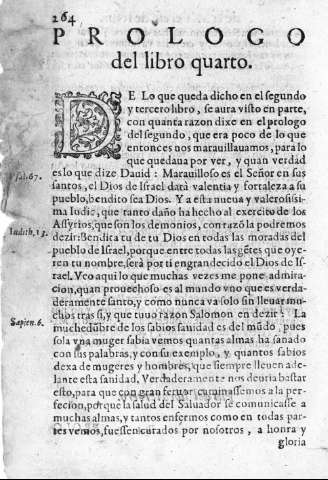 264
PROLOGO
del libro quarto.
DE Lo que queda dicho en el segundo
y tercero libro, se aura visto en parte,
con quanta razon dixe en el prologo
del segundo, que era poco de lo que
entonces nos marauillauamos, para lo
que quedaua por ver, y quan verdad
es lo que dize Dauid: Marauilloso es el Señor en sus
Psal.67.
santos, el Dios de Israel dará valentia y fortaleza a su
pueblo, bendito sea Dios. Y a esta nueua y valerosissi-
ma Iudic, que tanto daño ha hecho al exercito de los
Assyrios, que son los demonios, con razõ la podremos
Iudith.13.
dezir: Bendita tu de tu Dios en todas las moradas del
pueblo de Israel, porque entre todas las gẽtes que oye-
ren tu nombre, será por ti engrandecido el Dios de Is-
rael. Veo aqui lo que muchas vezes me pone admira-
cion, quan prouechoso es al mundo vno que es verda-
deramente santo, y como nunca va solo sin lleuar mu-
chos tras si, y que tuuo razon Salomon en dezir: La
Sapien.6.
muchedũbre de los sabios sanidad es del mũdo, pues
sola vna muger sabia vemos quantas almas ha sanado
con sus palabras, y con su exemplo, y quantos sabios
dexa de mugeres y hombres, que siempre lleuen ade-
lante esta sanidad. Verdaderamente nos deuria bastar
esto, para que con gran feruor caminassemos a la per-
fecion, porque la salud del Saluador se comunicasse a
muchas almas, y tantos enfermos como en todas par-
tes vemos, fuessen curados por nosotros, a honra y
gloria